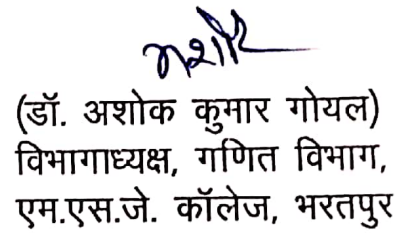 अशोक
(डॉ. अशोक कुमार गोयल)
विभागाध्यक्ष, गणित विभाग,
एम.एस.जे. कॉलेज, भरतपुर